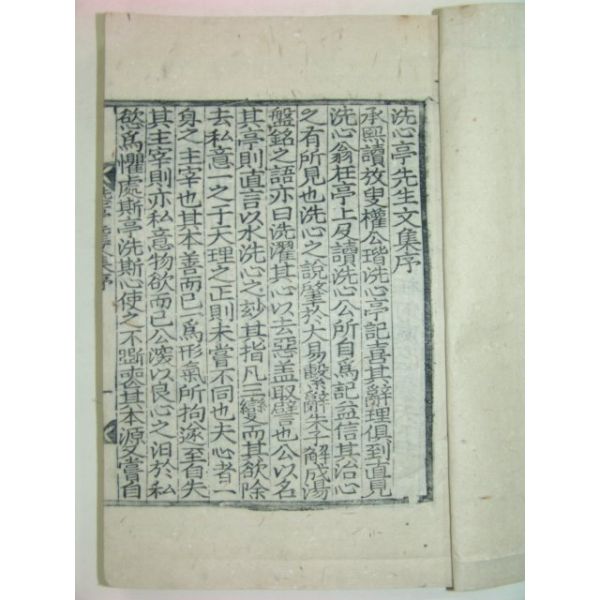 洗心亭先生文集序
承㒷讀放叟權公瑎洗心亭記喜其辭理俱到直見
洗心翁在亭上及讀洗心公所自爲記益信其治心
之有所見也洗心之說肇於大易繫辭朱子解成湯
盤銘之語亦曰洗濯其心以去惡盖取譬也公以名
其亭則直言以水洗心之玅其指凡三變而其欲除
去私意一之于天理之正則未嘗不同也夫心者一
身之主宰也其本善而已一爲形氣所拘遂至自失
其主宰則亦私意物欲而已公深以良心之汩於私
慾爲懼處斯亭洗斯心使之不斲喪其本源又嘗自